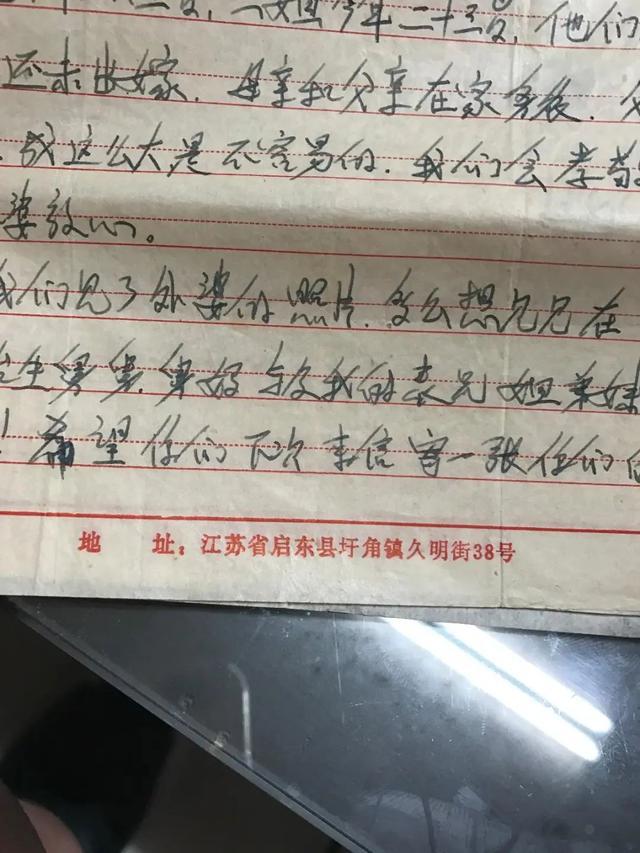 二姐今年二十三岁,他们
还未出嫁.母亲和父亲在家务农.父
成这么大是不容易的.我们会孝敬
婆放心。
我们见了外婆的照片.多么想兄兄在
舅舅.舅妈与我的表兄姐弟妹
!希望你们下次来信寄一张你们的
地 址:江苏省启东县圩角镇久明街38号